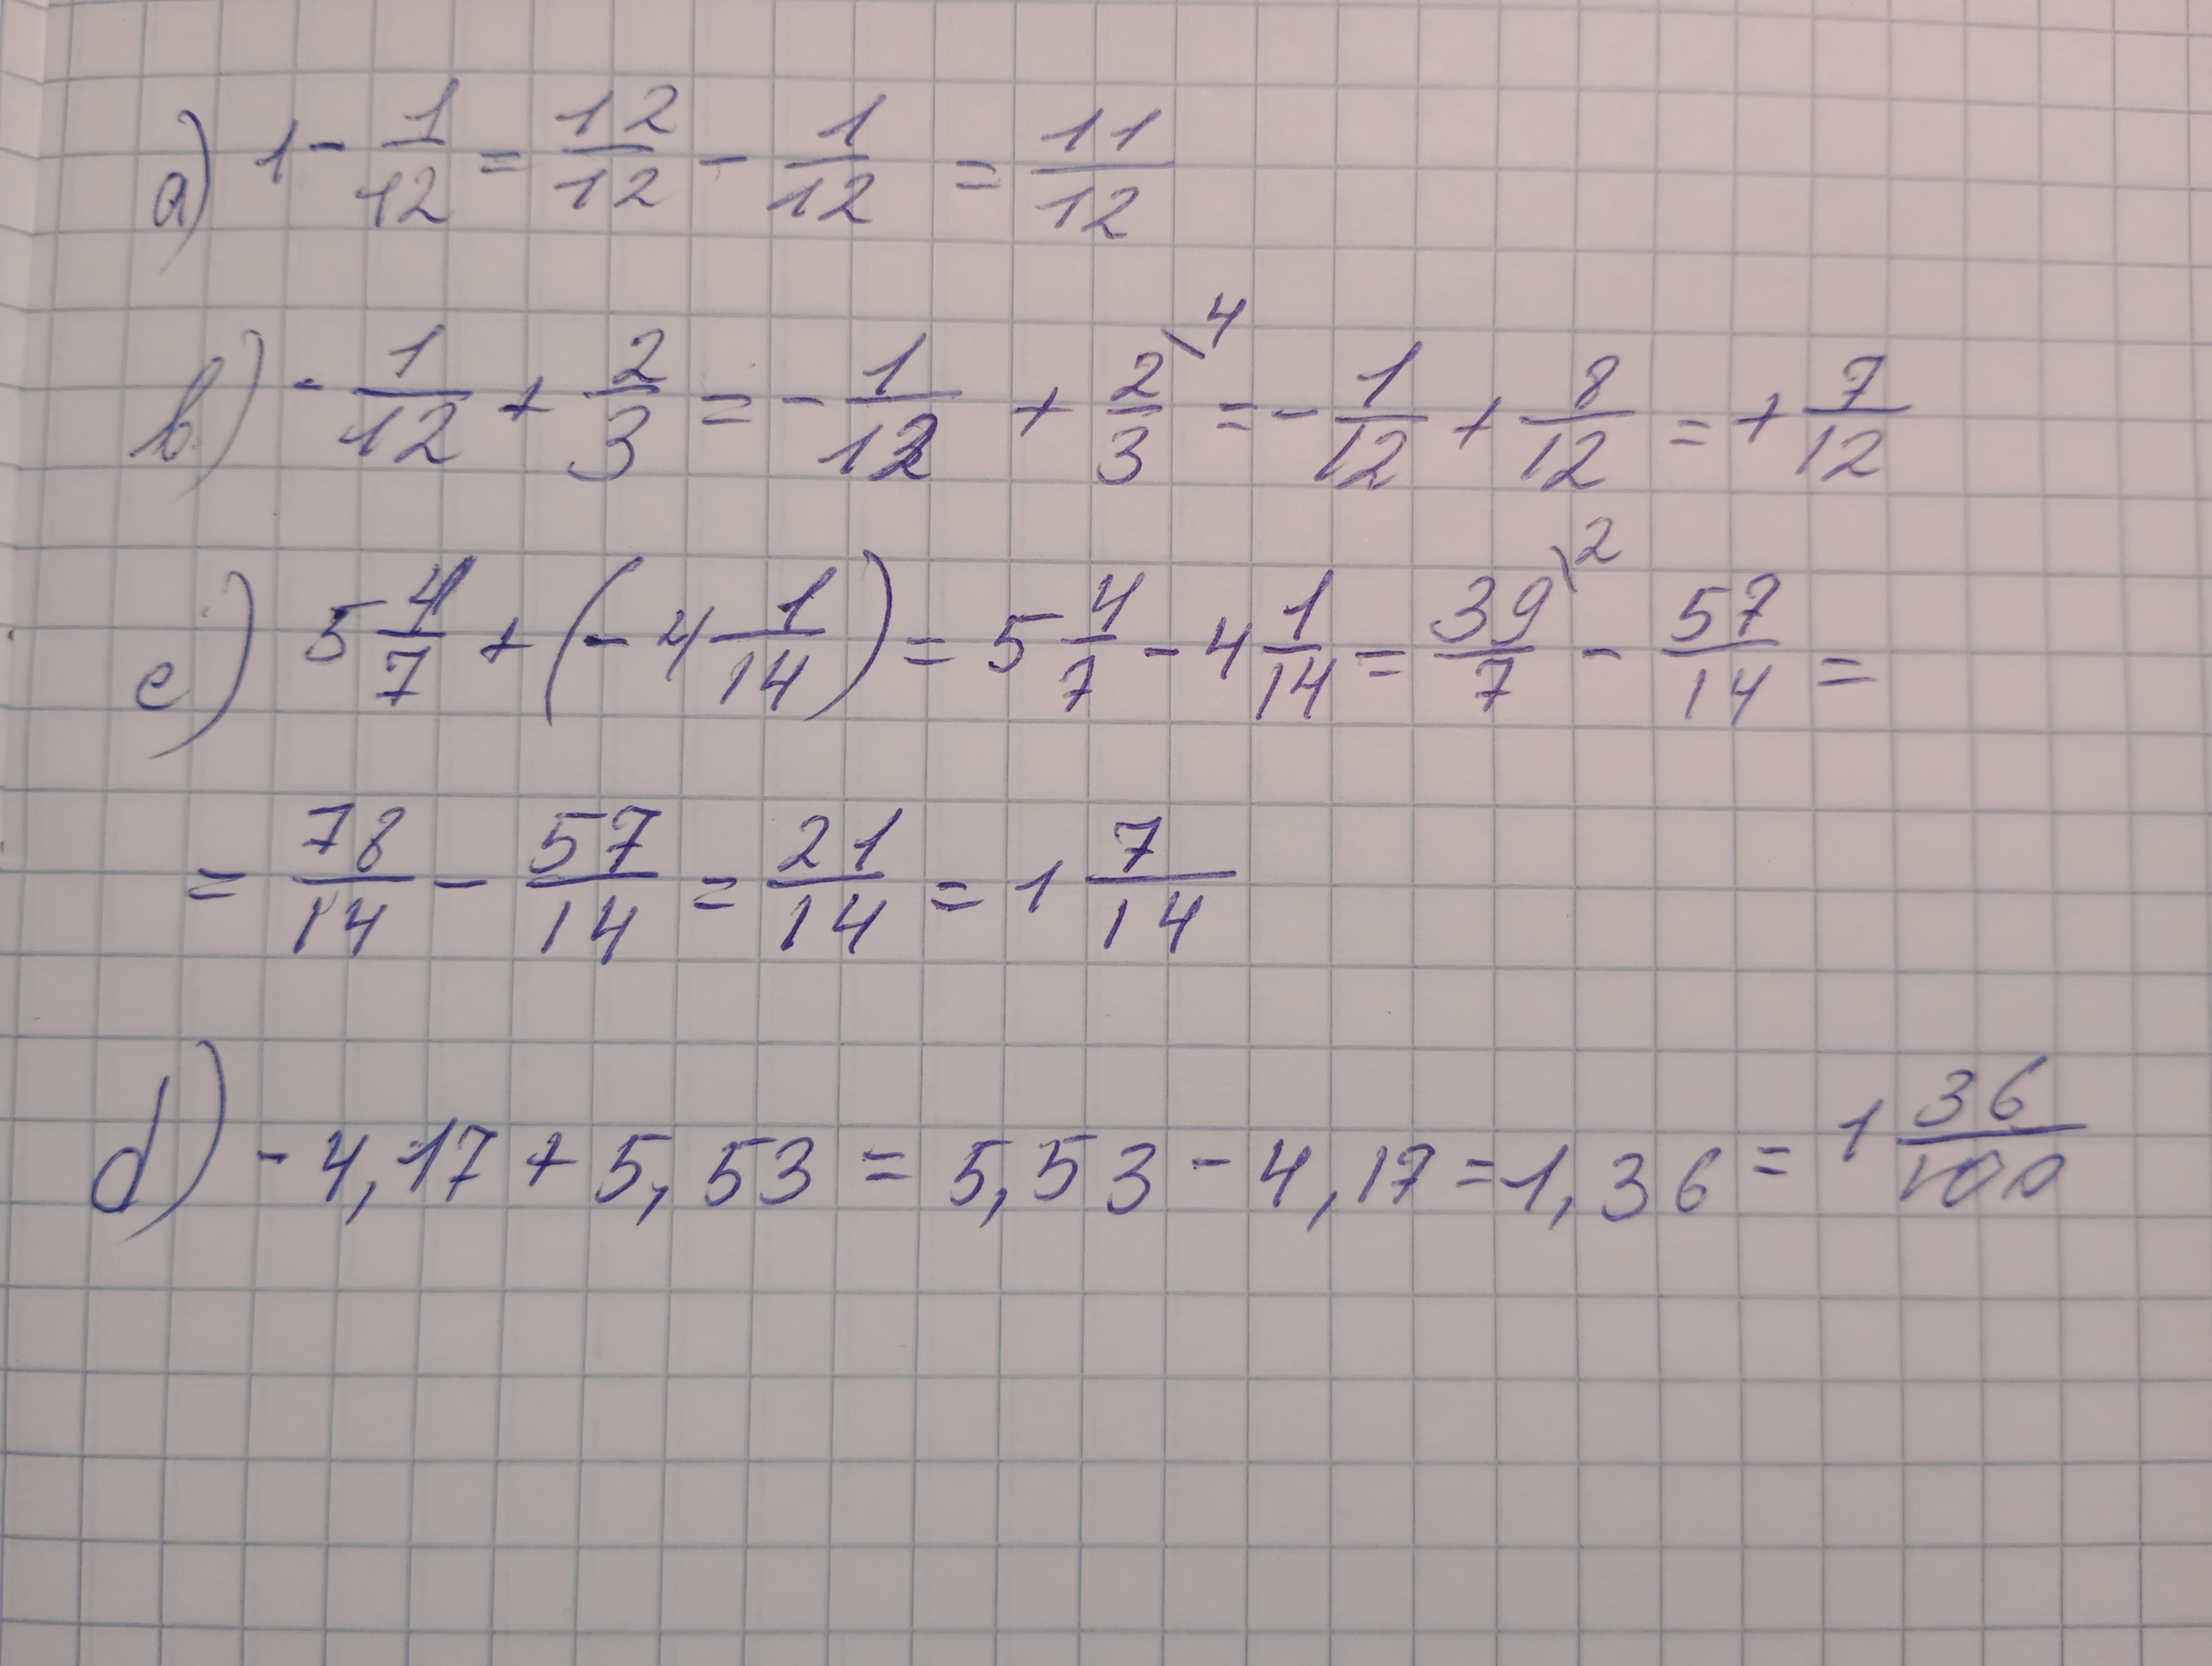 a) 1 - 1/12 = 12/12 - 1/12 = 11/12
b) - 1/12 + 2/3 = - 1/12 + 2/3 \4 = - 1/12 + 8/12 = + 7/12
c) 5 4/7 + (- 4 1/14) = 5 4/7 - 4 1/14 = 39/7 \2 - 57/14 =
= 78/14 - 57/14 = 21/14 = 1 7/14
d) - 4,17 + 5,53 = 5,53 - 4,17 = 1,36 = 1 36/100